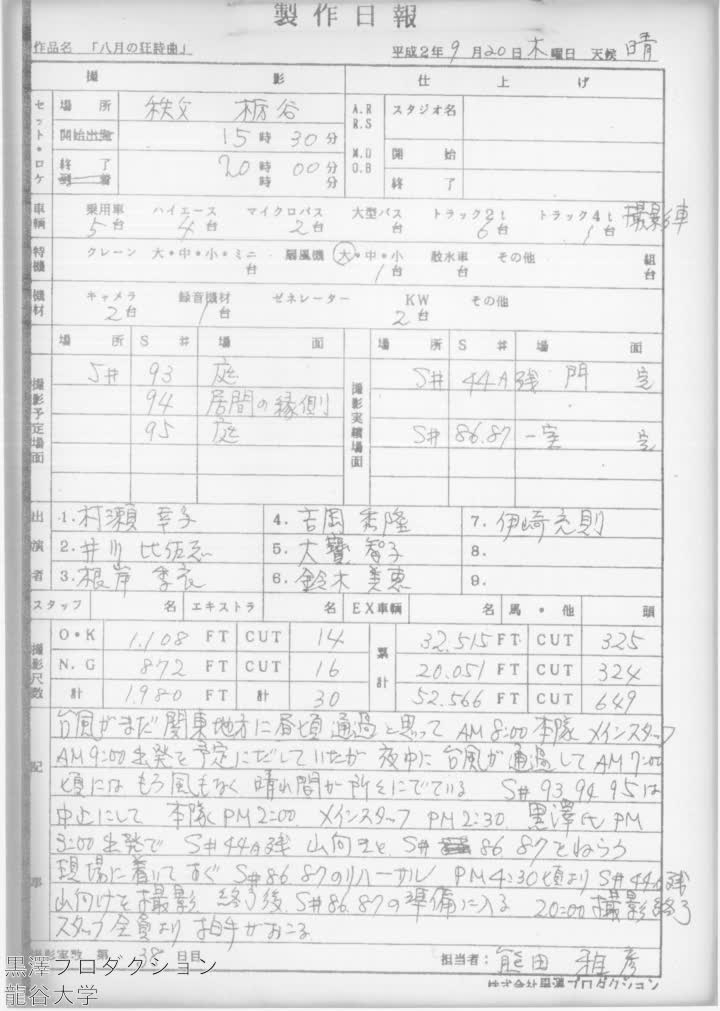 製作日報
作品名 「八月の狂詩曲」 平成2年9月20日木曜日 天候 晴
撮影 仕上げ
セット・ロケ 場所 秩父 栃谷 A.R R.S スタジオ名
開始出発 15時30分 M.O O.B 開始
終了到着 20時00分 時 分 終了
車輌 乗用車 5台 ハイエース 4台 マイクロバス 2台 大型バス 台 トラック2t 6台 トラック4t 1台 撮影車
特機 クレーン 大・中・小・ミニ 台 扇風機 大・中・小 1台 散水車 台 その他 組台
機材 キャメラ 2台 録音機材 1台 ゼネレーター KW 2台 その他
場所 S# 場面 場所 S# 場面
撮影予定場面 S# 93 庭 撮影実績場面 S# 44A残 門 完
94 居間の縁側
95 庭 S# 86.87 一室 完
出演者 1. 村瀬幸子 4. 吉岡秀隆 7. 伊崎充則
2. 井川比佐志 5. 大寶智子 8.
3. 根岸季衣 6. 鈴木美恵 9.
スタッフ 名 エキストラ 名 EX車輌 名 馬・他 頭
撮影尺数 O・K 1.108 FT CUT 14 累計 32.515 FT CUT 325
N.G 872 FT CUT 16 20.051 FT CUT 324
計 1.980 FT 計 30 52.566 FT CUT 649
記事 台風がまだ関東地方に昼頃通過と思って AM8:00 本隊 メインスタッフ
AM9:00 出発を予定にだしていたが 夜中に台風が通過して AM7:00
頃にはもう風もなく 晴れ間が所々にでている S#93.94.95は
中止にして 本隊PM2:00. メインスタッフ PM2:30. 黒澤氏PM
3:00出発で S#44A残 山向きと. S#86.87とねらう
現場に着いてすぐ S#86.87のリハーサル PM4:30頃より S#44A残
山向けを撮影 終了後. S#86.87の準備に入る 20:00撮影終了
スタッフ全員より拍手がおこる
撮影実数 第 38 日目 担当者: 熊田雅彦
株式会社黒澤プロダクション
黒澤プロダクション
龍谷大学